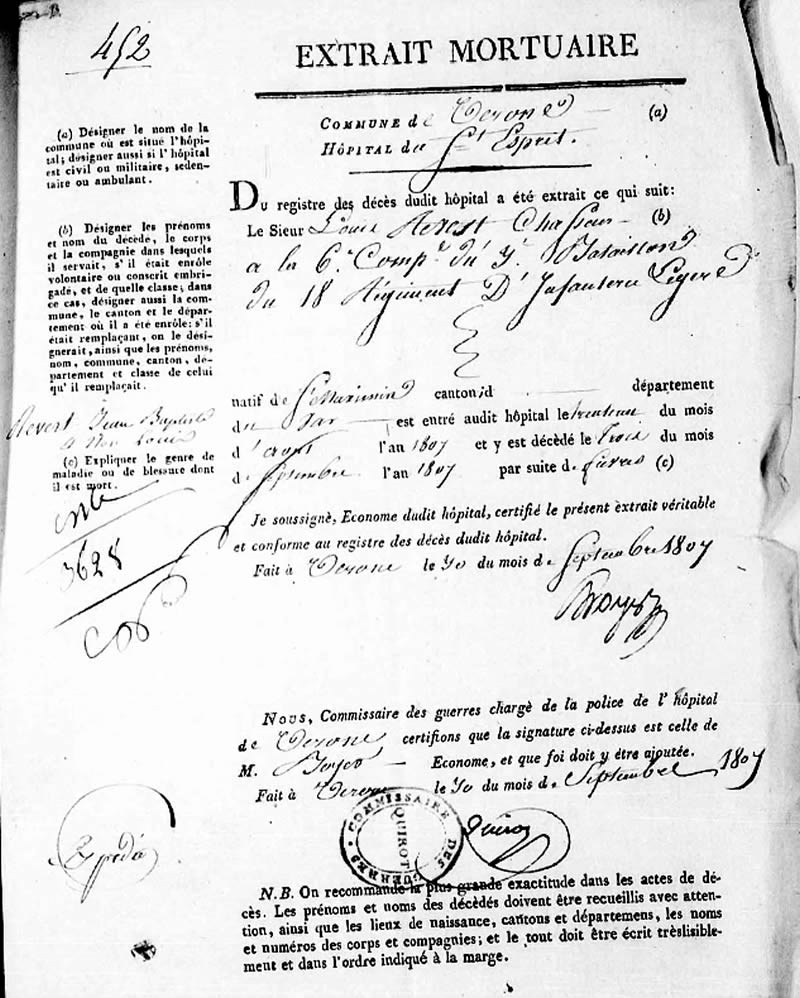 452
EXTRAIT MORTUAIRE
COMMUNE de Verone (a)
HÔPITAL du St Esprit.
(a) Désigner le nom de la
commune où est situé l'hôpi-
tal; désigner aussi si l'hôpital
est civil ou militaire, seden-
taire ou ambulant.
(b) Désigner les prénoms
et nom du décède, le corps
et la compagnie dans lesquels
il servait, s'il était enrôlé
volontaire ou conscrit embri-
gadé, et de quelle classe; dans
ce cas, désigner aussi la com-
mune, le canton et le dépar-
tement où il a été enrôle: s'il
était remplaçant, on le dési-
gnerait, ainsi que les prénoms,
nom, commune, canton, dé-
partement et classe de celui
qu'il remplaçait.
Revert Jean Baptiste
& Non Louis
(c) Expliquer le genre de
maladie ou de blessure dont
il est mort.
3628
Du registre des décès dudit hôpital a été extrait ce qui suit:
Le Sieur Louis Revest Chasseur (b)
a la 6e Compe du Bataillon
du 18 Régiment D'Infanterie Légere
natif de St Maximin canton d département
du Var est entré audit hôpital le trenteun du mois
d'aoust l'an 1807 et y est décédé le Trois du mois
de Septembre l'an 1807 par suite de fievres (c)
Je soussignè, Econome dudit hôpital, certifié le présent extrait véritable
et conforme au registre des décès dudit hôpital.
Fait à Verone le 30 du mois de Septembre 1807
Nous, Commissaire des guerres chargè de la police de l'hôpital
de Verone certifions que la signature ci-dessus est celle de
M. Boyer Econome, et que foi doit y être ajoutée.
Fait à Verone le 30 du mois de Septembre 1807
COMMISSAIRE DES GUERRES
QUIROT
Quirot
Expedié
N.B. On recommande la plus grande exactitude dans les actes de dé-
cès. Les prénoms et noms des décédés doivent être recueillis avec atten-
tion, ainsi que les lieux de naissance, cantons et départemens, les noms
et numéros des corps et compagnies; et le tout doit être écrit trèslisible-
ment et dans l'ordre indiqué à la marge.